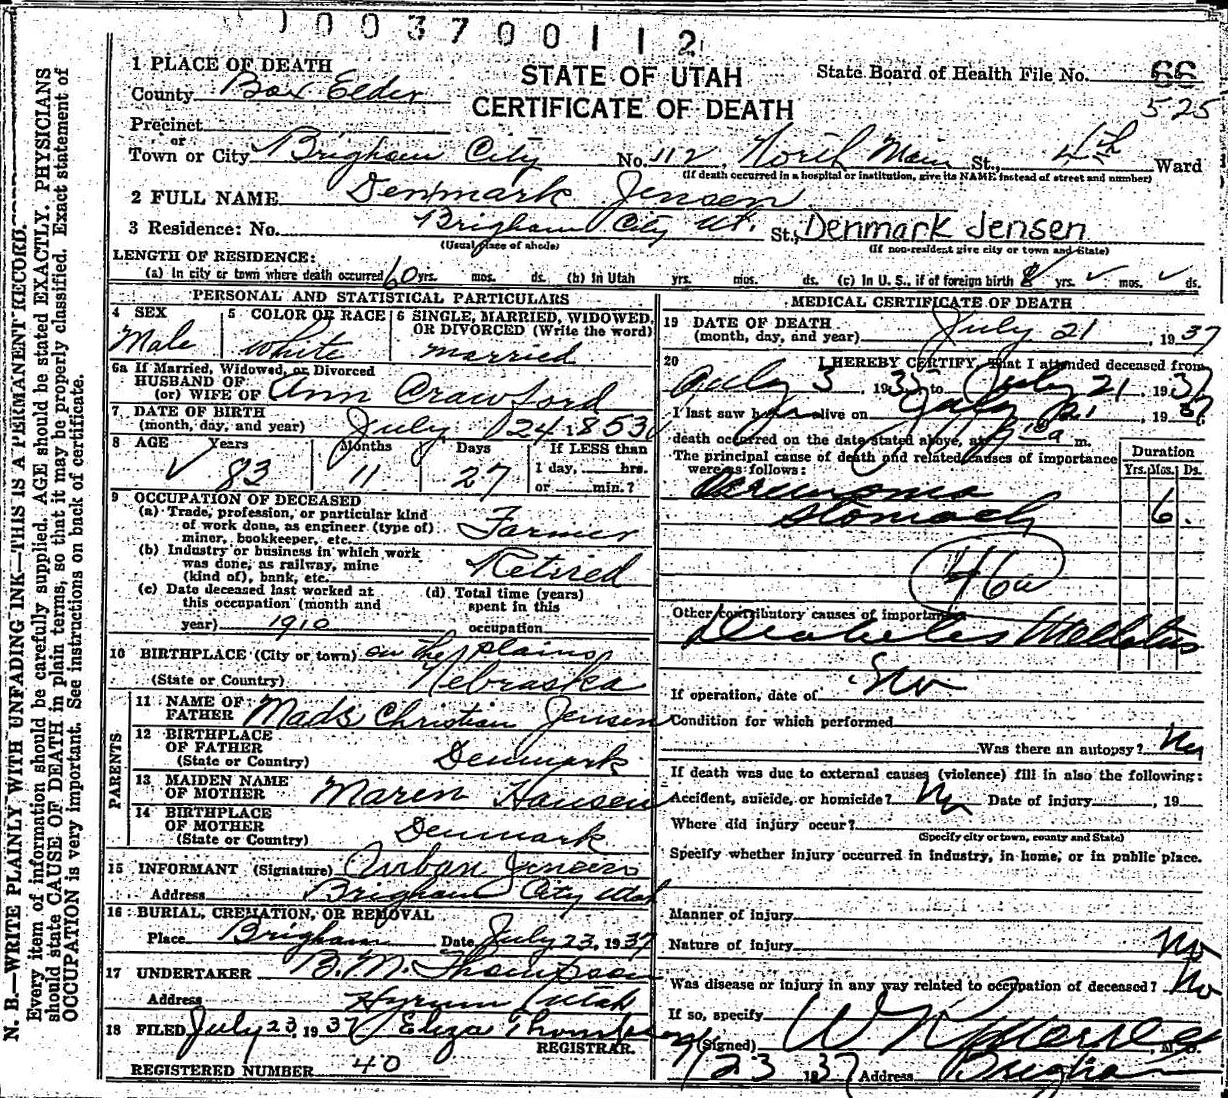 1003700112
1 PLACE OF DEATH
STATE OF UTAH
State Board of Health File No. 66
County Box Elder
CERTIFICATE OF DEATH
525
Precinct
or
Town or City Brigham City No. 112, North Main St., 4th Ward
(If death occurred in a hospital or institution, give its NAME instead of street and number)
2 FULL NAME Denmark Jensen
3 Residence: No. Brigham City Ut. St., Denmark Jensen
(Usual place of abode) (If non-resident give city or town and State)
LENGTH OF RESIDENCE:
(a) In city or town where death occurred 60 yrs. mos. ds. (b) In Utah yrs. mos. ds. (c) In U. S., if of foreign birth yrs. mos. ds.
PERSONAL AND STATISTICAL PARTICULARS
4 SEX 5 COLOR OR RACE 6 SINGLE, MARRIED, WIDOWED, OR DIVORCED (Write the word)
Male White married
6a If Married, Widowed, or Divorced
HUSBAND OF
(or) WIFE OF Ann Crawford
7 DATE OF BIRTH
(month, day, and year) July 24 1853
8 AGE Years Months Days If LESS than
1 day, hrs.
83 11 27 or min.?
9 OCCUPATION OF DECEASED
(a) Trade, profession, or particular kind
of work done, as engineer (type of)
miner, bookkeeper, etc. Farmer
(b) Industry or business in which work
was done, as railway, mine
(kind of), bank, etc. Retired
(c) Date deceased last worked at
this occupation (month and
year) 1910
(d) Total time (years)
spent in this
occupation
10 BIRTHPLACE (City or town) on the plains
(State or Country) Nebraska
PARENTS
11 NAME OF
FATHER Mads Christian Jensen
12 BIRTHPLACE
OF FATHER
(State or Country) Denmark
13 MAIDEN NAME
OF MOTHER Maren Hansen
14 BIRTHPLACE
OF MOTHER
(State or Country) Denmark
15 INFORMANT (Signature) Urban Jensen
Address Brigham City Utah
16 BURIAL, CREMATION, OR REMOVAL
Place Brigham Date July 23, 1937
17 UNDERTAKER B. M. Thompson
Address Hyrum Utah
18 FILED July 23, 1937 Eliza Thompson
REGISTRAR.
REGISTERED NUMBER 40
MEDICAL CERTIFICATE OF DEATH
19 DATE OF DEATH
(month, day, and year) July 21, 1937
20 I HEREBY CERTIFY, That I attended deceased from
July 3, 1933 to July 21, 1937
I last saw h alive on July 21, 1937
death occurred on the date stated above, at a m.
The principal cause of death and related causes of importance
were as follows:
Duration
Yrs. Mos. Ds.
Stomach 6
46a
Other contributory causes of importance
Diabetes Mellitus
If operation, date of No
Condition for which performed
Was there an autopsy? No
If death was due to external causes (violence) fill in also the following:
Accident, suicide, or homicide? No Date of injury , 19
Where did injury occur?
(Specify city or town, county and State)
Specify whether injury occurred in industry, in home, or in public place.
Manner of injury
Nature of injury No
Was disease or injury in any way related to occupation of deceased? No
If so, specify
(Signed) , M. D.
23 1937 Address Brigham
N. B.—WRITE PLAINLY WITH UNFADING INK—THIS IS A PERMANENT RECORD.
Every item of information should be carefully supplied. AGE should be stated EXACTLY. PHYSICIANS
should state CAUSE OF DEATH in plain terms, so that it may be properly classified. Exact statement of
OCCUPATION is very important. See instructions on back of certificate.